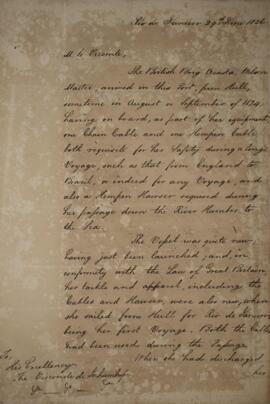 Rio de Janeiro 29th June 1826
M. le Vicomte,
The British Brig Oceada, Nelson
Master, arrived in this Port, from Hull,
sometime in August or September of 1824,
having on board, as part of her equipment,
one Chain Cable and one Hempen Cable
both requisite for her Safety during a long
Voyage, such as that from England to
Brazil, or indeed for any Voyage, and
also a Hempen Hawser required during
her passage down the River Humber to
the Sea.
The Vessel was quite new,
having just been launched; and, in
conformity with the Law of Great Britain
her tackle and apparel, including the
Cables and Hawser, were also new, when
she sailed from Hull for Rio de Janeiro
being her first Voyage. Both the Cables
had been used during the Passage.
When she had discharged
her
To,
His Excellency
The Visconde de Inhambupe